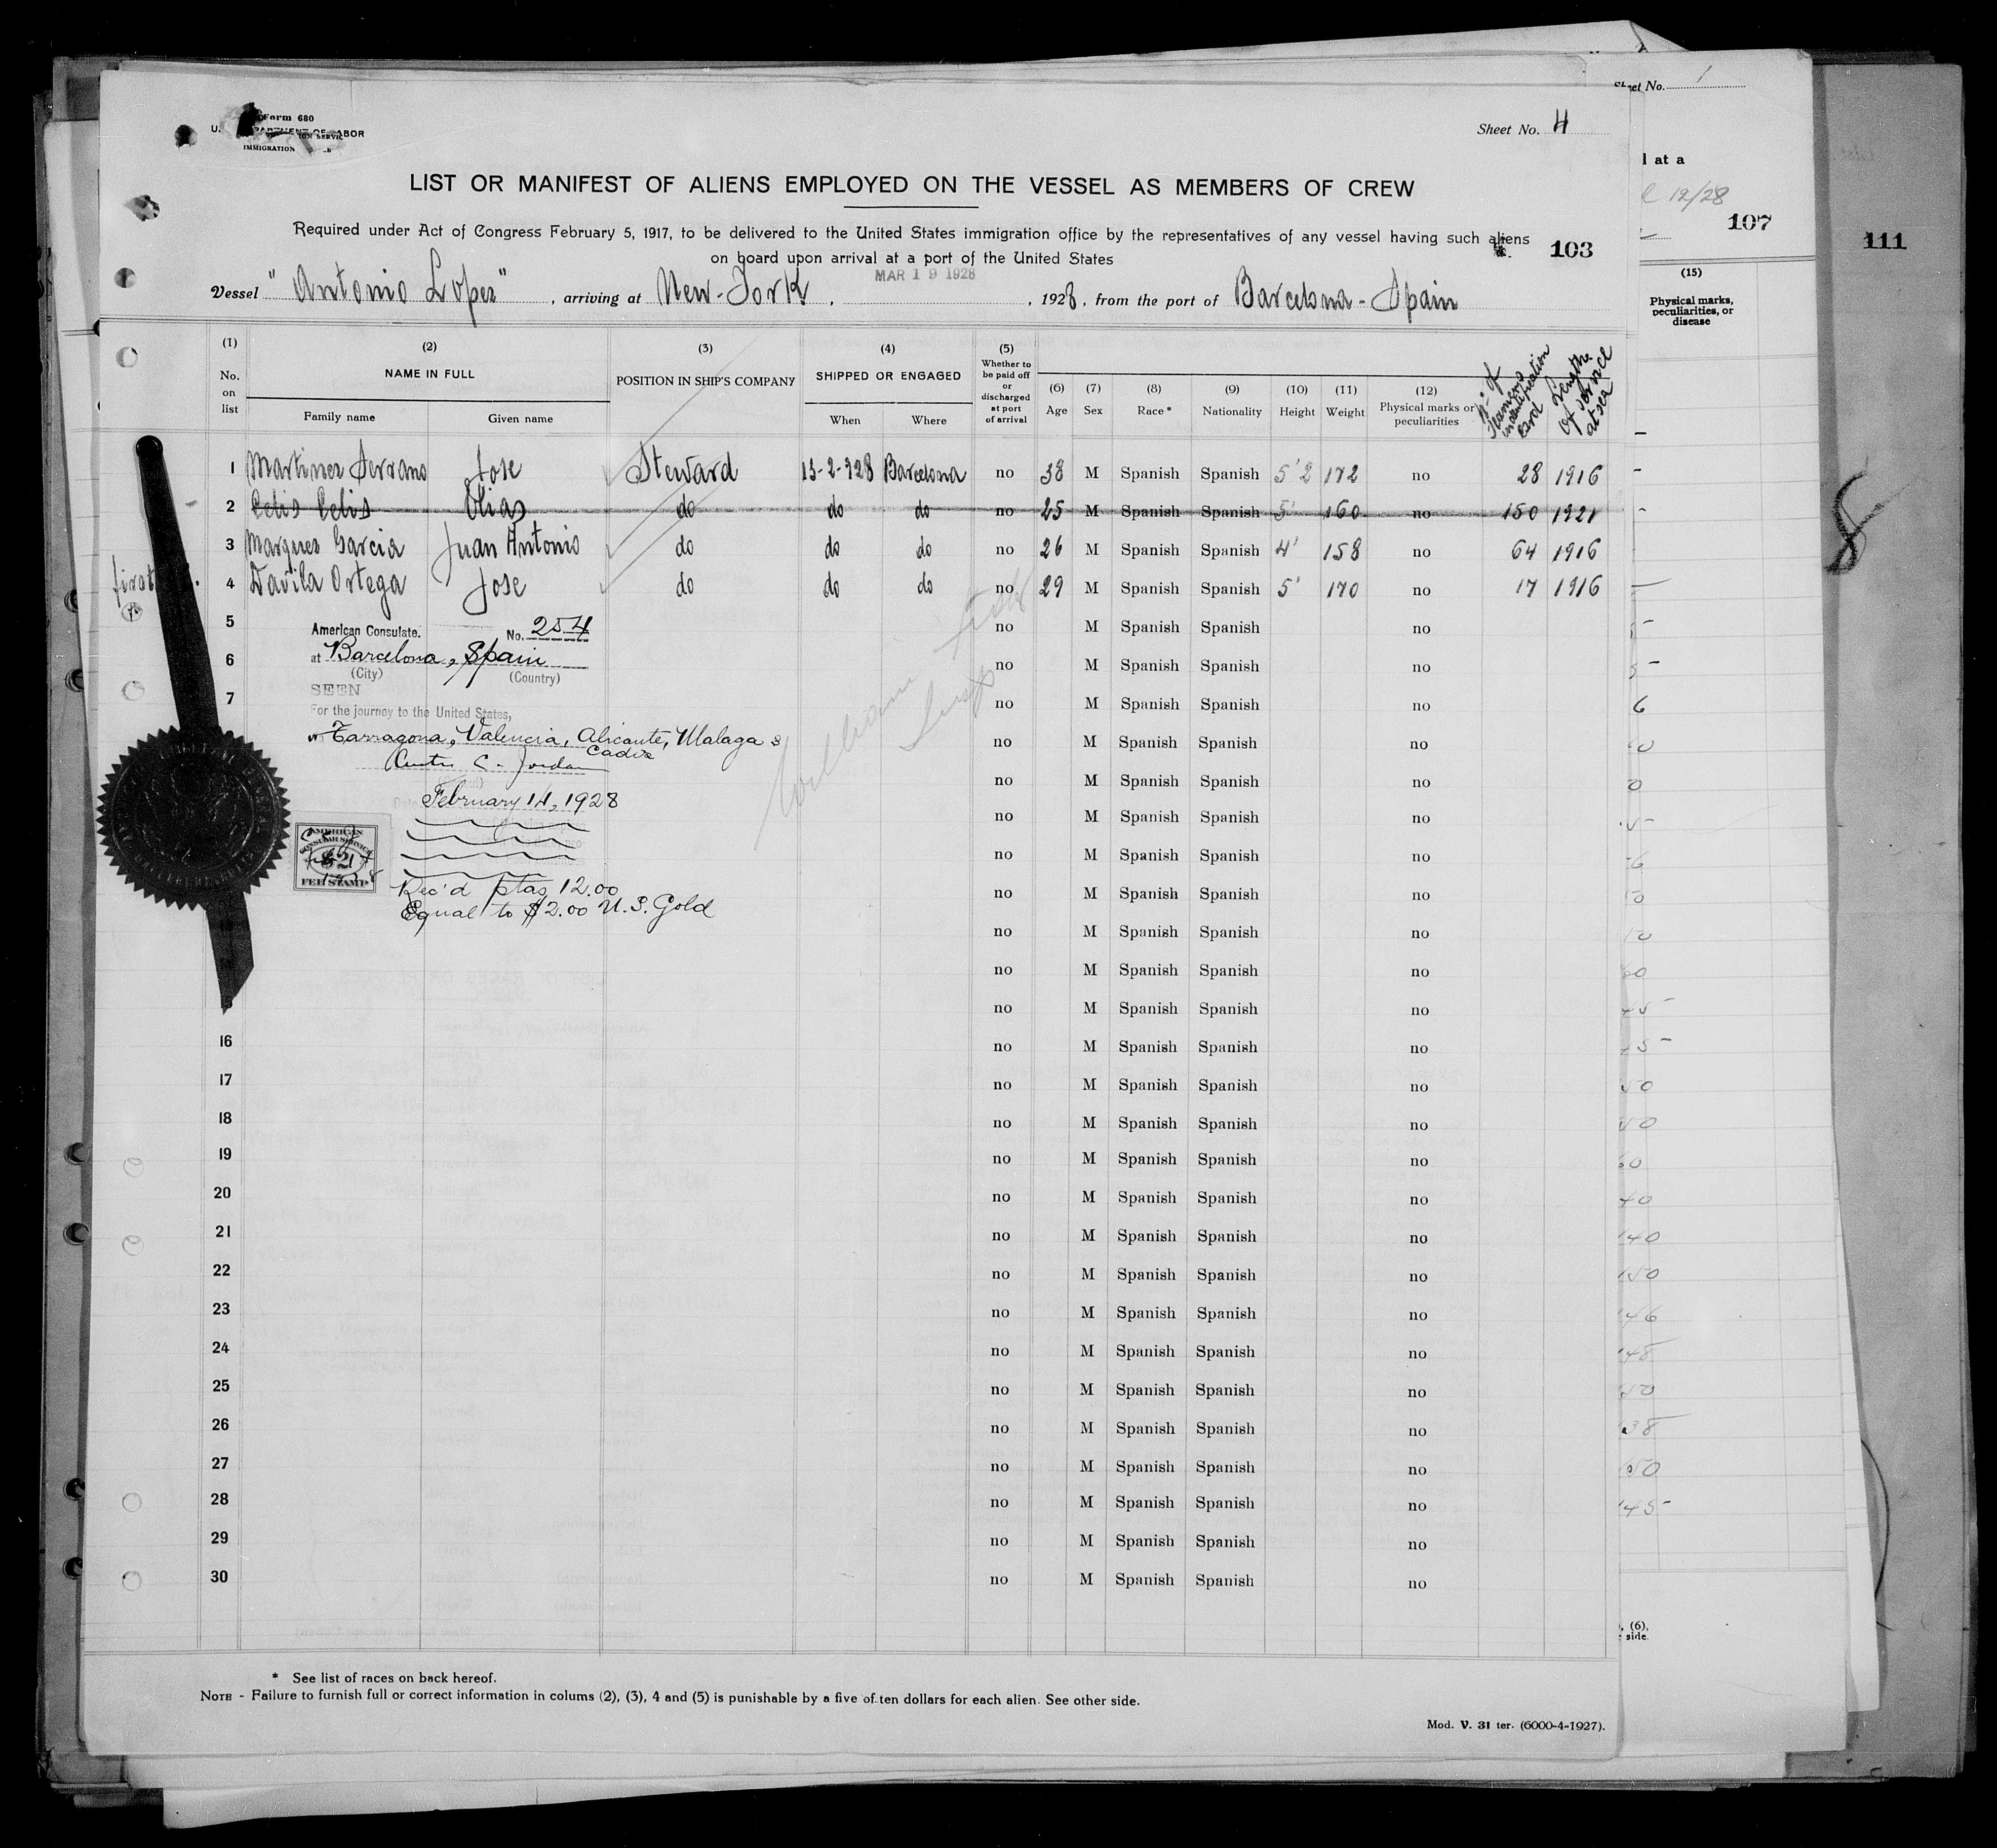 Form 680
U. DEPARTMENT OF LABOR
IMMIGRATION
Sheet No. 4
LIST OR MANIFEST OF ALIENS EMPLOYED ON THE VESSEL AS MEMBERS OF CREW
Required under Act of Congress February 5, 1917, to be delivered to the United States immigration office by the representatives of any vessel having such aliens
on board upon arrival at a port of the United States
103
MAR 19 1928
Vessel "Antonio Lopez", arriving at New-York, , 1928, from the port of Barcelona - Spain
(1) (2) (3) (4) (5) (6) (7) (8) (9) (10) (11) (12)
No. on list NAME IN FULL Family name Given name POSITION IN SHIP'S COMPANY SHIPPED OR ENGAGED When Where Whether to be paid off or discharged at port of arrival Age Sex Race * Nationality Height Weight Physical marks or peculiarities Nº of Seamens identification card Length of service at sea
1 Martinez Serrano Jose Steward 13-2-928 Barcelona no 38 M Spanish Spanish 5'2 172 no 28 1916
2 Celis Celis Olias do do do no 25 M Spanish Spanish 5' 160 no 150 1921
3 Marques Garcia Juan Antonio do do do no 26 M Spanish Spanish 4' 158 no 64 1916
first 4 Davila Ortega Jose do do do no 29 M Spanish Spanish 5' 170 no 17 1916
5 no M Spanish Spanish no
American Consulate. No. 254
6 no M Spanish Spanish no
at Barcelona, Spain
(City) (Country)
SEEN
7 no M Spanish Spanish no
For the journey to the United States,
Tarragona, Valencia, Alicante, Malaga &
Cadiz
no M Spanish Spanish no
Curtis C. Jordan
no M Spanish Spanish no
February 14, 1928
no M Spanish Spanish no
AMERICAN
CONSULAR SERVICE
$2
FEE STAMP
no M Spanish Spanish no
Rec'd ptas 12.00
no M Spanish Spanish no
Equal to $2.00 U.S. Gold
no M Spanish Spanish no
no M Spanish Spanish no
5 no M Spanish Spanish no
16 no M Spanish Spanish no
17 no M Spanish Spanish no
18 no M Spanish Spanish no
19 no M Spanish Spanish no
20 no M Spanish Spanish no
21 no M Spanish Spanish no
22 no M Spanish Spanish no
23 no M Spanish Spanish no
24 no M Spanish Spanish no
25 no M Spanish Spanish no
26 no M Spanish Spanish no
27 no M Spanish Spanish no
28 no M Spanish Spanish no
29 no M Spanish Spanish no
30 no M Spanish Spanish no
* See list of races on back hereof.
NOTE - Failure to furnish full or correct information in colums (2), (3), 4 and (5) is punishable by a five of ten dollars for each alien. See other side.
Mod. V. 31 ter. (6000-4-1927).
Sheet No. 1
l at a
12/28
107
(15)
Physical marks,
peculiarities, or
disease
, (6),
side.
111
8